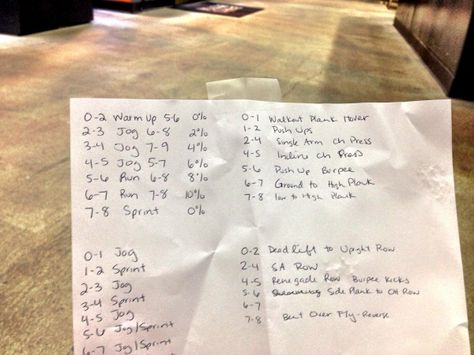 0-2 Warm up 5-6 0%
2-3 Jog 6-8 2%
3-4 Jog 7-9 4%
4-5 Jog 5-7 6%
5-6 Run 6-8 8%
6-7 Run 7-8 10%
7-8 Sprint 0%
0-1 Walkout Plank Hover
1-2 Push Ups
2-4 Single Arm Ch Press
4-5 Incline Ch Press
5-6 Push Up Burpee
6-7 Ground to High Plank
7-8 low to High Plank
0-1 Jog
1-2 Sprint
2-3 Jog
3-4 Sprint
4-5 Jog
5-6 Jog/Sprint
6-7 Jog/Sprint
0-2 Deadlift to Upright Row
2-4 SA Row
4-5 Renegade Row Burpee Kicks
5-6 Side Plank to CH Row
6-7
7-8 Bent Over Fly-Reverse